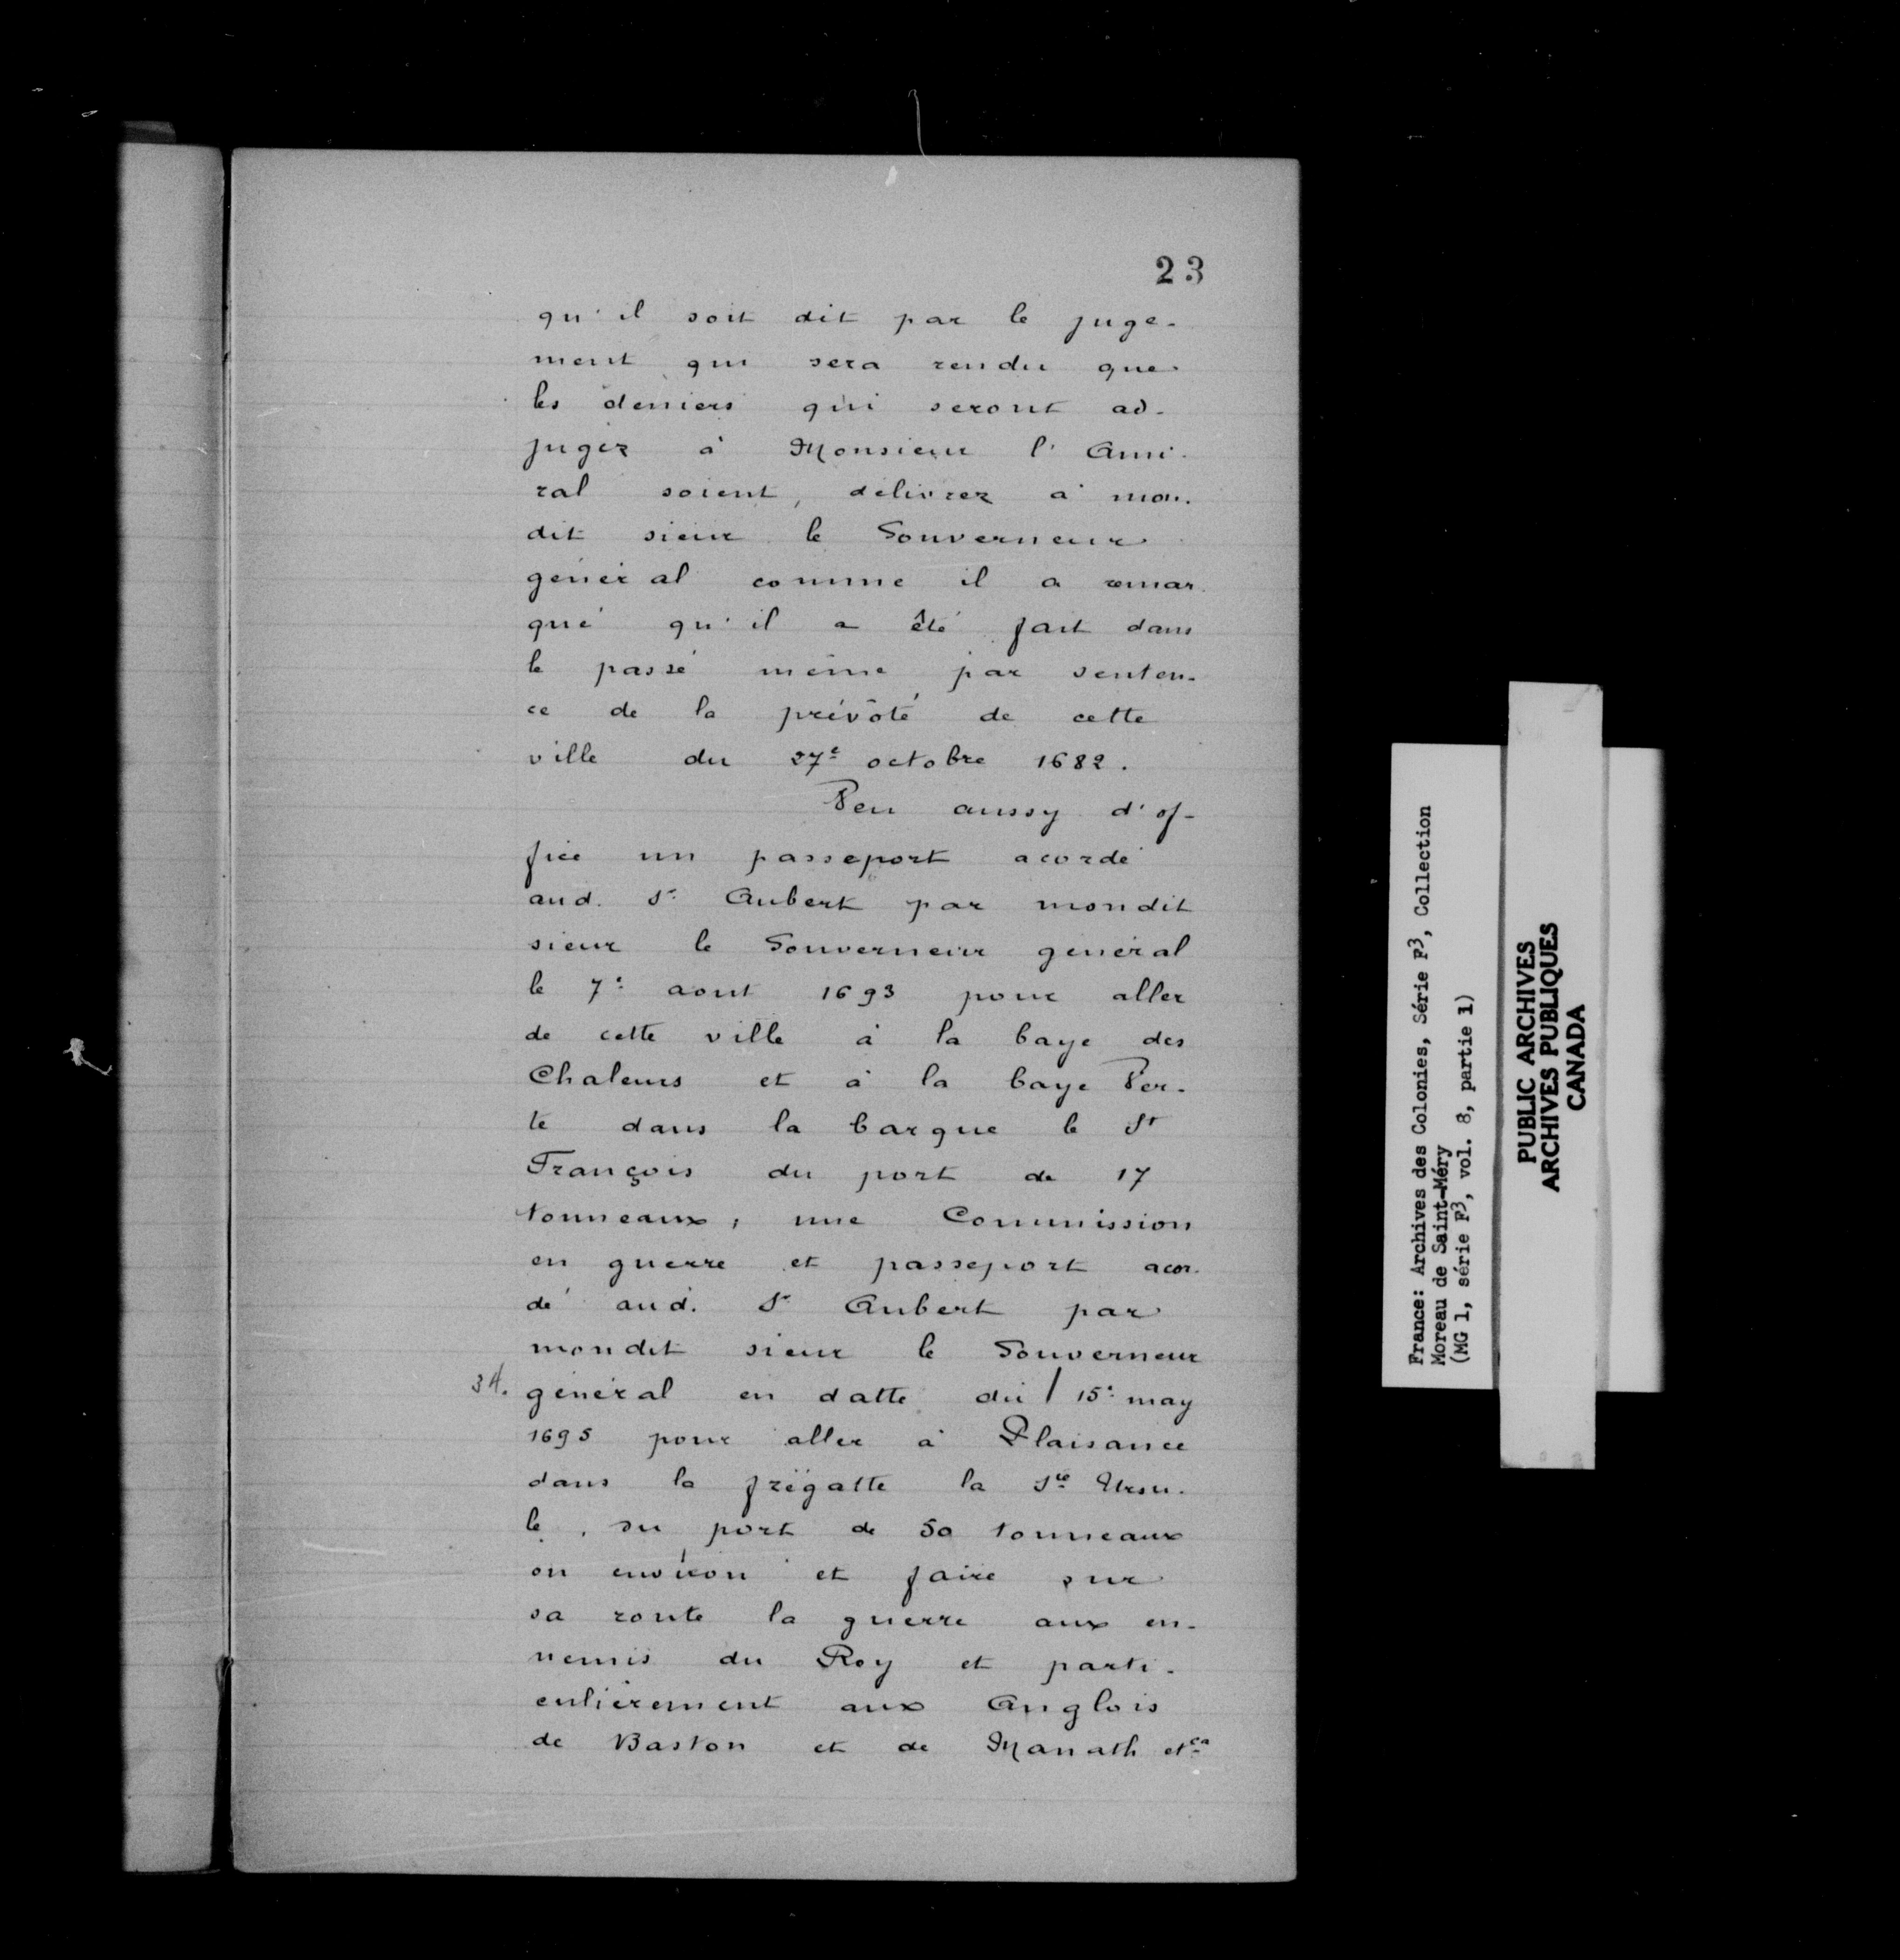 23
qu'il soit dit par le juge-
ment qui sera rendu que
les deniers qui seront ad-
jugéz à Monsieur l'Ami-
ral soient, délivrez à mon-
dit sieur le Gouverneur
général comme il a remar-
qué qu'il a êté fait dans
le passé même par senten-
ce de la prévôté de cette
ville du 27e octobre 1682.
Veu aussy d'of-
fice un passeport acordé
aud. Sr Aubert par mondit
sieur le Gouverneur général
le 7e aout 1693 pour aller
de cette ville à la baye des
Chaleurs et à la baye Ver-
te dans la barque le St
François du port de 17
tonneaux, une Commission
en guerre et passeport acor-
dé aud. Sr Aubert par
mondit sieur le Gouverneur
34. général en datte du / 15e may
1695 pour aller à Plaisance
dans la frégatte la Ste Ursu-
le, du port de 50 tonneaux
ou environ et faire sur
sa route la guerre aux en-
nemis du Roy et parti-
culièrement aux Anglois
de Baston et de Manath etca
France: Archives des Colonies, Série F3, Collection
Moreau de Saint-Méry
(MG 1, série F3, vol. 8, partie 1)
PUBLIC ARCHIVES
ARCHIVES PUBLIQUES
CANADA